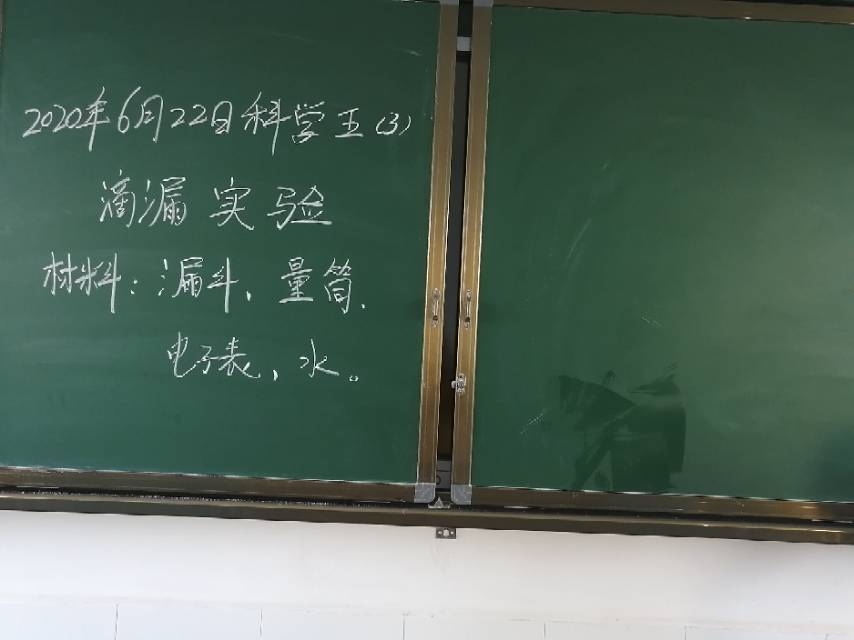 2020年6月22日科学五(3)
滴漏实验
材料：漏斗、量筒、
电子表，水。